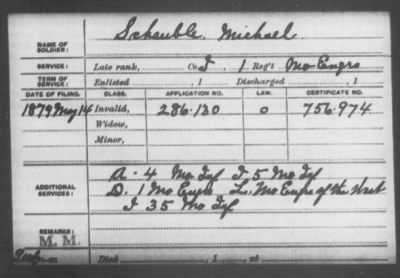 NAME OF SOLDIER: Schauble, Michael
SERVICE: Late rank, Co. I, 1 Reg't Mo Engrs
TERM OF SERVICE: Enlisted , 1 Discharged , 1
DATE OF FILING. CLASS. APPLICATION NO. LAW. CERTIFICATE NO.
1879 May 14 Invalid, 286.130 O 756.974
Widow,
Minor,
ADDITIONAL SERVICES: A. 4 Mo Inf I 5 Mo Inf
D. 1 Mo Engrs L. Mo Engrs of the West
I 35 Mo Inf
REMARKS:
M. M.
Died , 1 , at